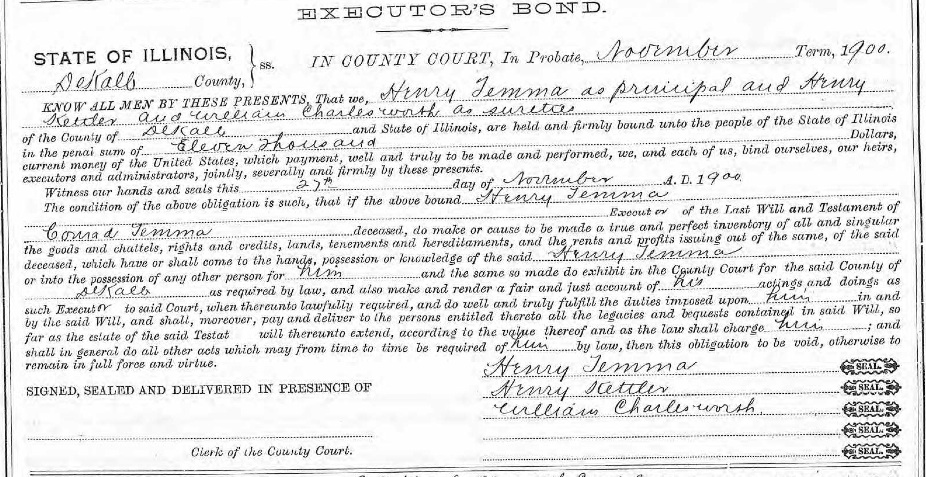 EXECUTOR'S BOND.
STATE OF ILLINOIS, } ss. IN COUNTY COURT, In Probate, November Term, 1900.
DeKalb County,
KNOW ALL MEN BY THESE PRESENTS, That we, Henry Temma as principal and Henry
Kettler and William Charlesworth as sureties
of the County of DeKalb and State of Illinois, are held and firmly bound unto the people of the State of Illinois
in the penal sum of Eleven Thousand Dollars,
current money of the United States, which payment, well and truly to be made and performed, we, and each of us, bind ourselves, our heirs,
executors and administrators, jointly, severally and firmly by these presents.
Witness our hands and seals this 27th day of November A. D. 1900.
The condition of the above obligation is such, that if the above bound Henry Temma
Executor of the Last Will and Testament of
Conrad Temma deceased, do make or cause to be made a true and perfect inventory of all and singular
the goods and chattels, rights and credits, lands, tenements and hereditaments, and the rents and profits issuing out of the same, of the said
deceased, which have or shall come to the hands, possession or knowledge of the said Henry Temma
or into the possession of any other person for him and the same so made do exhibit in the County Court for the said County of
DeKalb as required by law, and also make and render a fair and just account of his actings and doings as
such Executor to said Court, when thereunto lawfully required, and do well and truly fulfill the duties imposed upon him in and
by the said Will, and shall, moreover, pay and deliver to the persons entitled thereto all the legacies and bequests contained in said Will, so
far as the estate of the said Testat will thereunto extend, according to the value thereof and as the law shall charge him ; and
shall in general do all other acts which may from time to time be required of him by law, then this obligation to be void, otherwise to
remain in full force and virtue.
Henry Temma SEAL.
SIGNED, SEALED AND DELIVERED IN PRESENCE OF Henry Kettler SEAL.
William Charlesworth. SEAL.
SEAL.
Clerk of the County Court. SEAL.